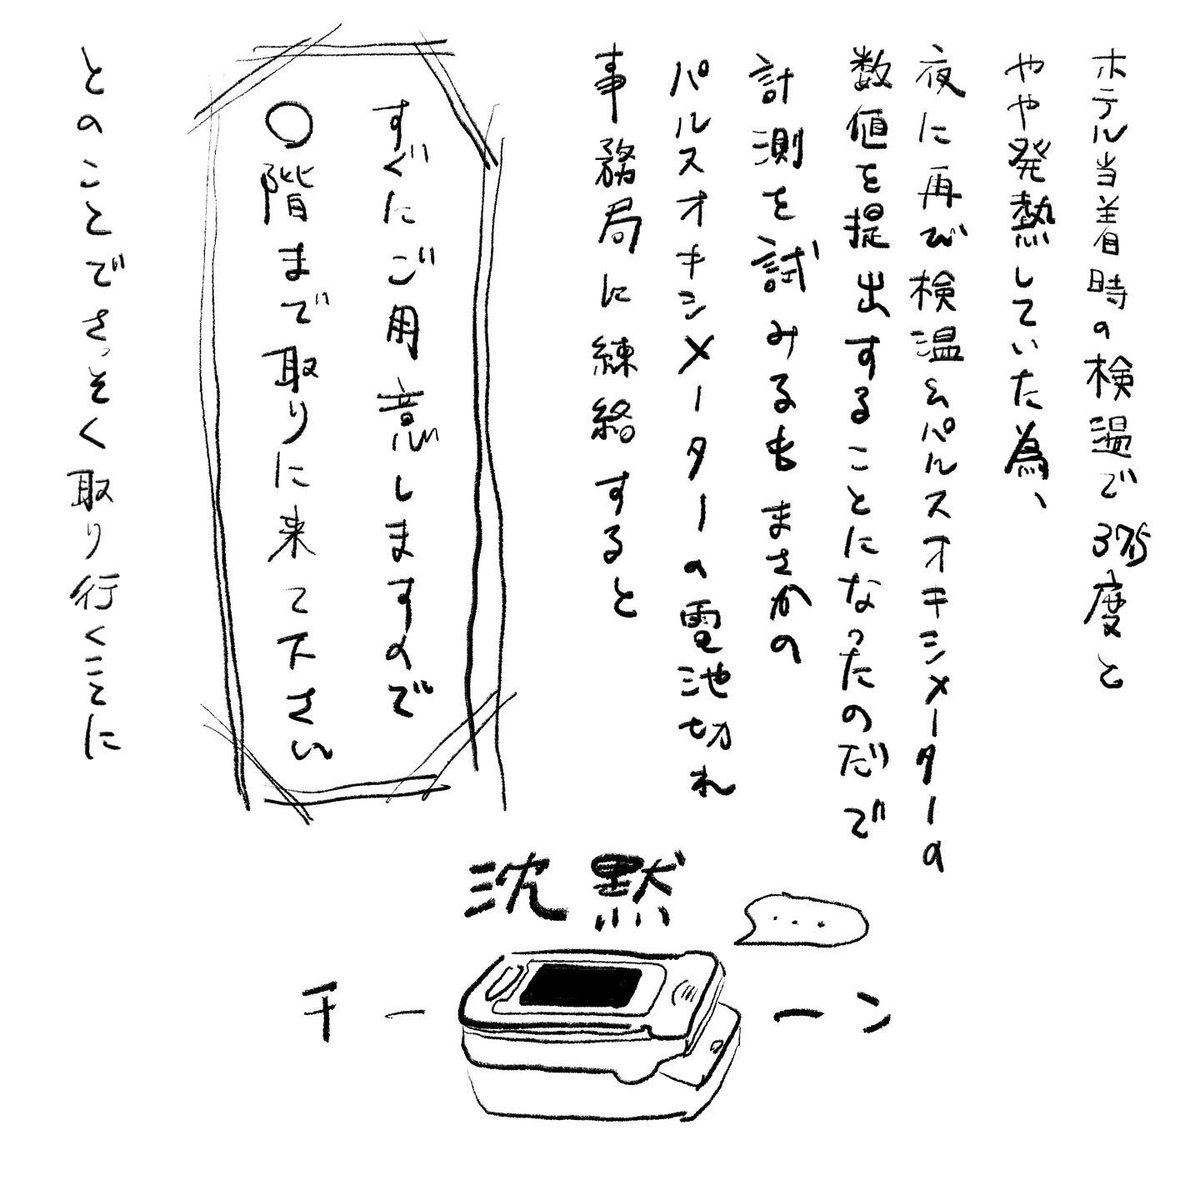 ホテル当着時の検温で37.5度と
やや発熱していた為、
夜に再び検温&パルスオキシメーターの
数値を提出することになったのだで
計測を試みるもまさかの
パルスオキシメーターの電池切れ
事務局に練絡すると
すぐにご用意しますので
〇階まで取りに来て下さい
とのことでさっそく取り行くことに
沈黙
...
チーーン